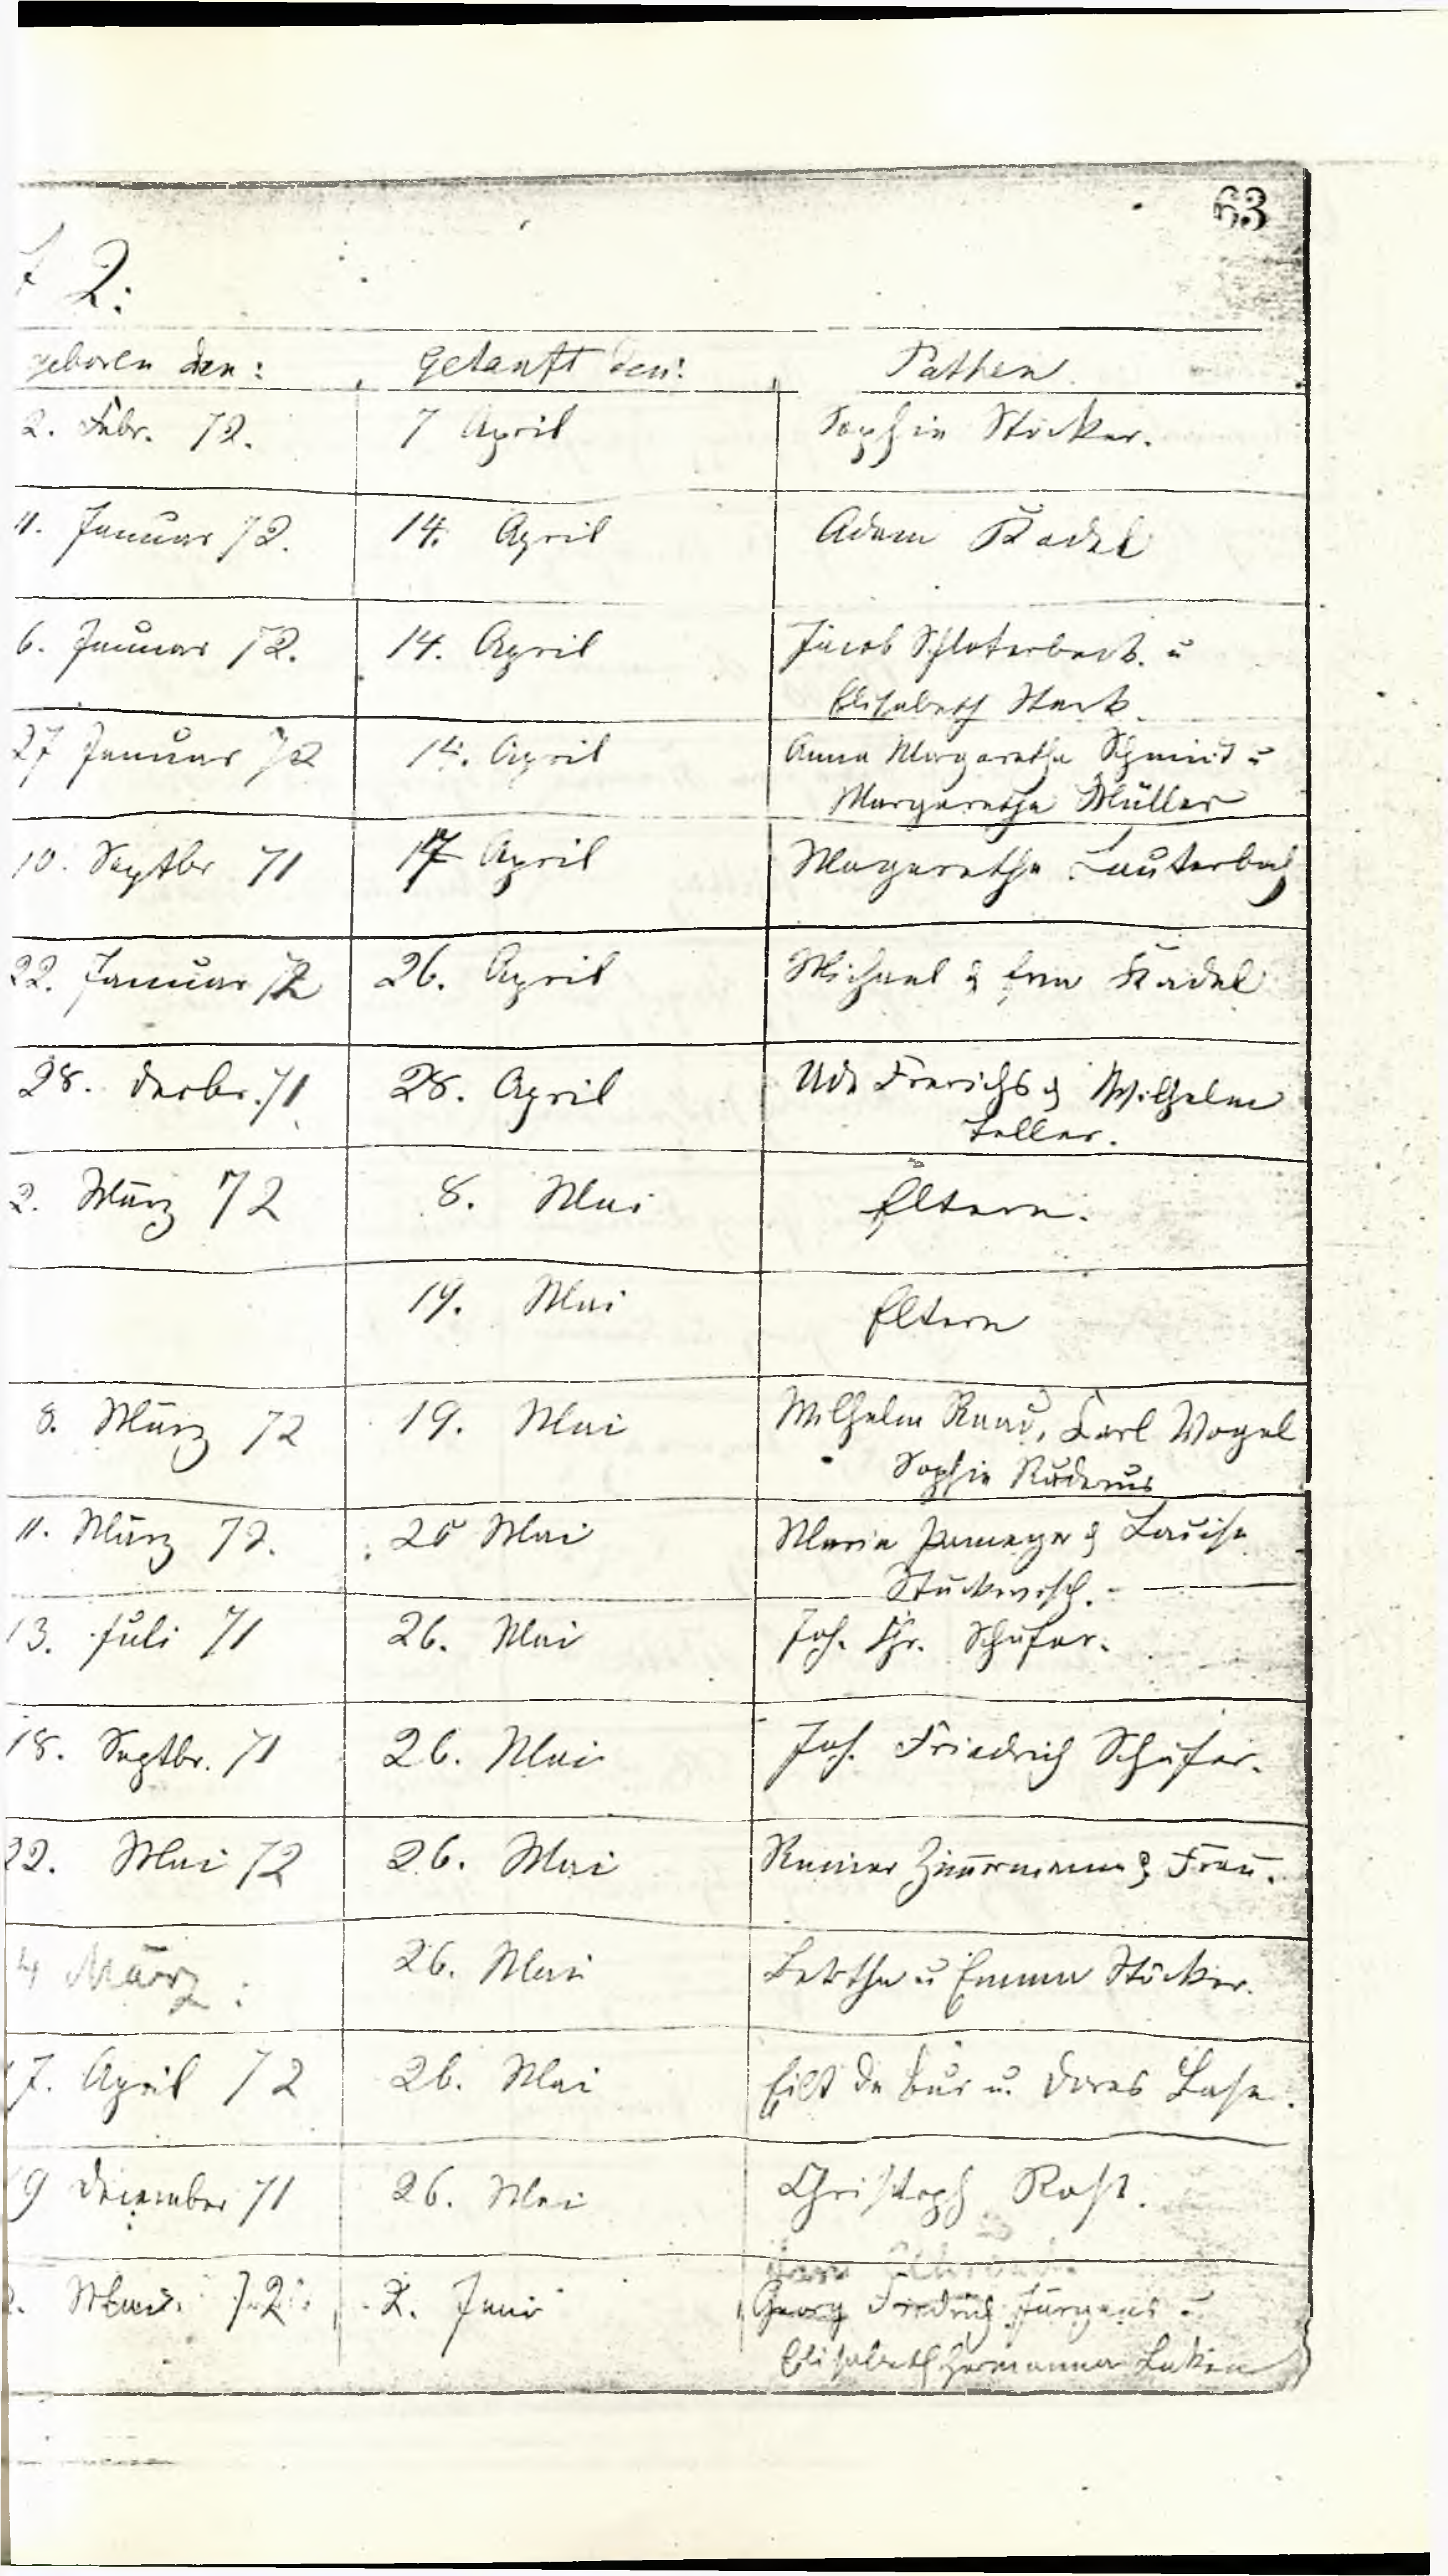 63
2:
geboren den: getauft den: Pathen.
2. Febr. 72. 7 April Sophie Stöcker.
11. Januar 72. 14. April Adam Kadel
6. Januar 72. 14. April Jacob Schloterbeck. u
Elisabeth Stark.
27 Januar 72 14. April Anna Margaretha Schmidt u
Margaretha Müller
10. Septbr 71 17 April Magaretha Lauterbach
22. Januar 72 26. April Michael & Eva Kadel
28. Decbr. 71. 28. April Udo Frerichs & Wilhelm
Feller.
2. März 72 8. Mai Eltern.
19. Mai Eltern
8. März 72 19. Mai Wilhelm Raau, Karl Vogel
Sophie
11. März 72. 25 Mai Maria & Louise
Stückwisch.
13. Juli 71 26. Mai Joh. Chr. Schäfer.
18. Septbr. 71 26. Mai Joh. Friedrich Schäfer.
22. Mai 72 26. Mai Reiner Zimmermann & Frau.
4 März: 26. Mai Bertha u Emma Stöcker.
7. April 72 26. Mai Eilt de Bur u. Dores
9 December 71 26. Mai Christoph Rost.
72 2. Juni Georg Friedrich Jürgens u
Elisabeth Hermanna